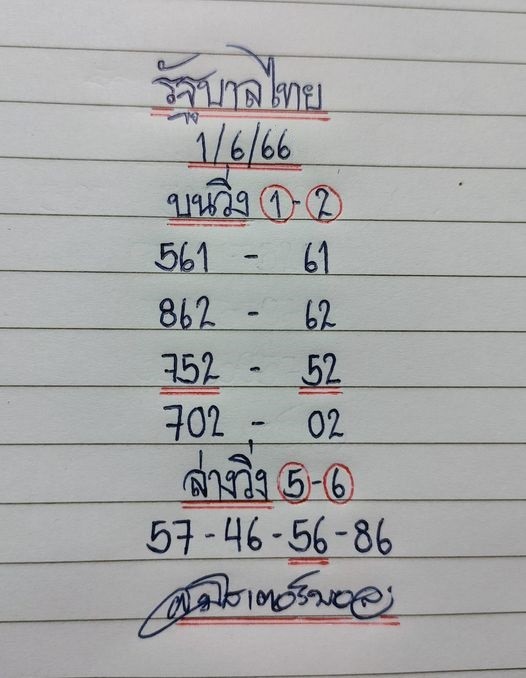 รัฐบาลไทย
1/6/66
บนวิ่ง 1-2
561 - 61
862 - 62
752 - 52
702 - 02
ล่างวิ่ง 5-6
57-46-56-86